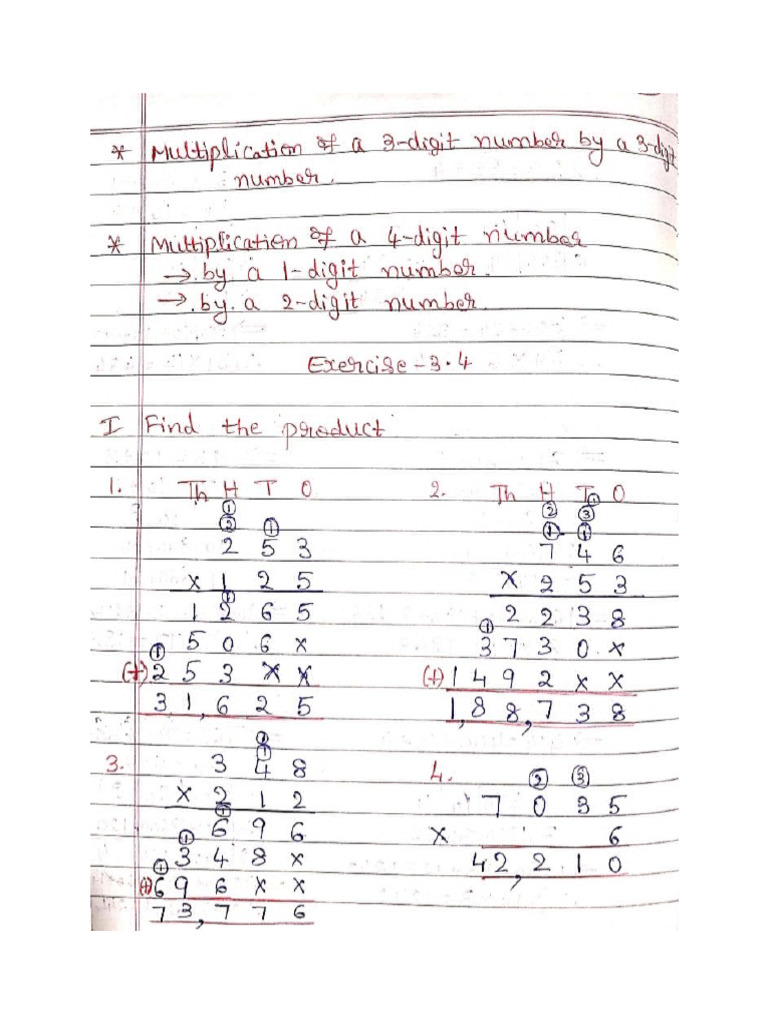 * Multiplication of a 3-digit number by a 3-digit
number.
* Multiplication of a 4-digit number
→ by a 1-digit number.
→ by a 2-digit number.
Exercise - 3.4
I Find the product
1. Th H T O
① 
② ①
2 5 3
x 1 2 5
①
1 2 6 5
5 0 6 x
① (+) 2 5 3 x x
3 1, 6 2 5
2. Th H T O
①
② ③
① ①
7 4 6
x 2 5 3
2 2 3 8
① 3 7 3 0 x
(+) 1 4 9 2 x x
1, 8 8, 7 3 8
3. 3 4 8
x 2 1 2
①
6 9 6
① 3 4 8 x
① (+) 6 9 6 x x
7 3, 7 7 6
4. ② ③
7 0 3 5
x 6
4 2, 2 1 0